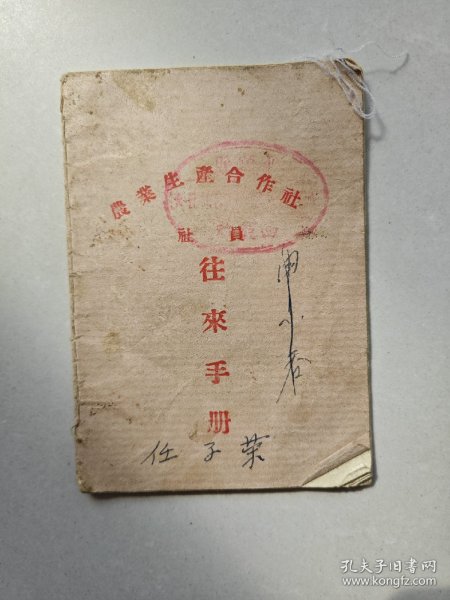 農業生產合作社
社員
往來手册
任子荣
孔夫子旧书网
www.kongfz.com